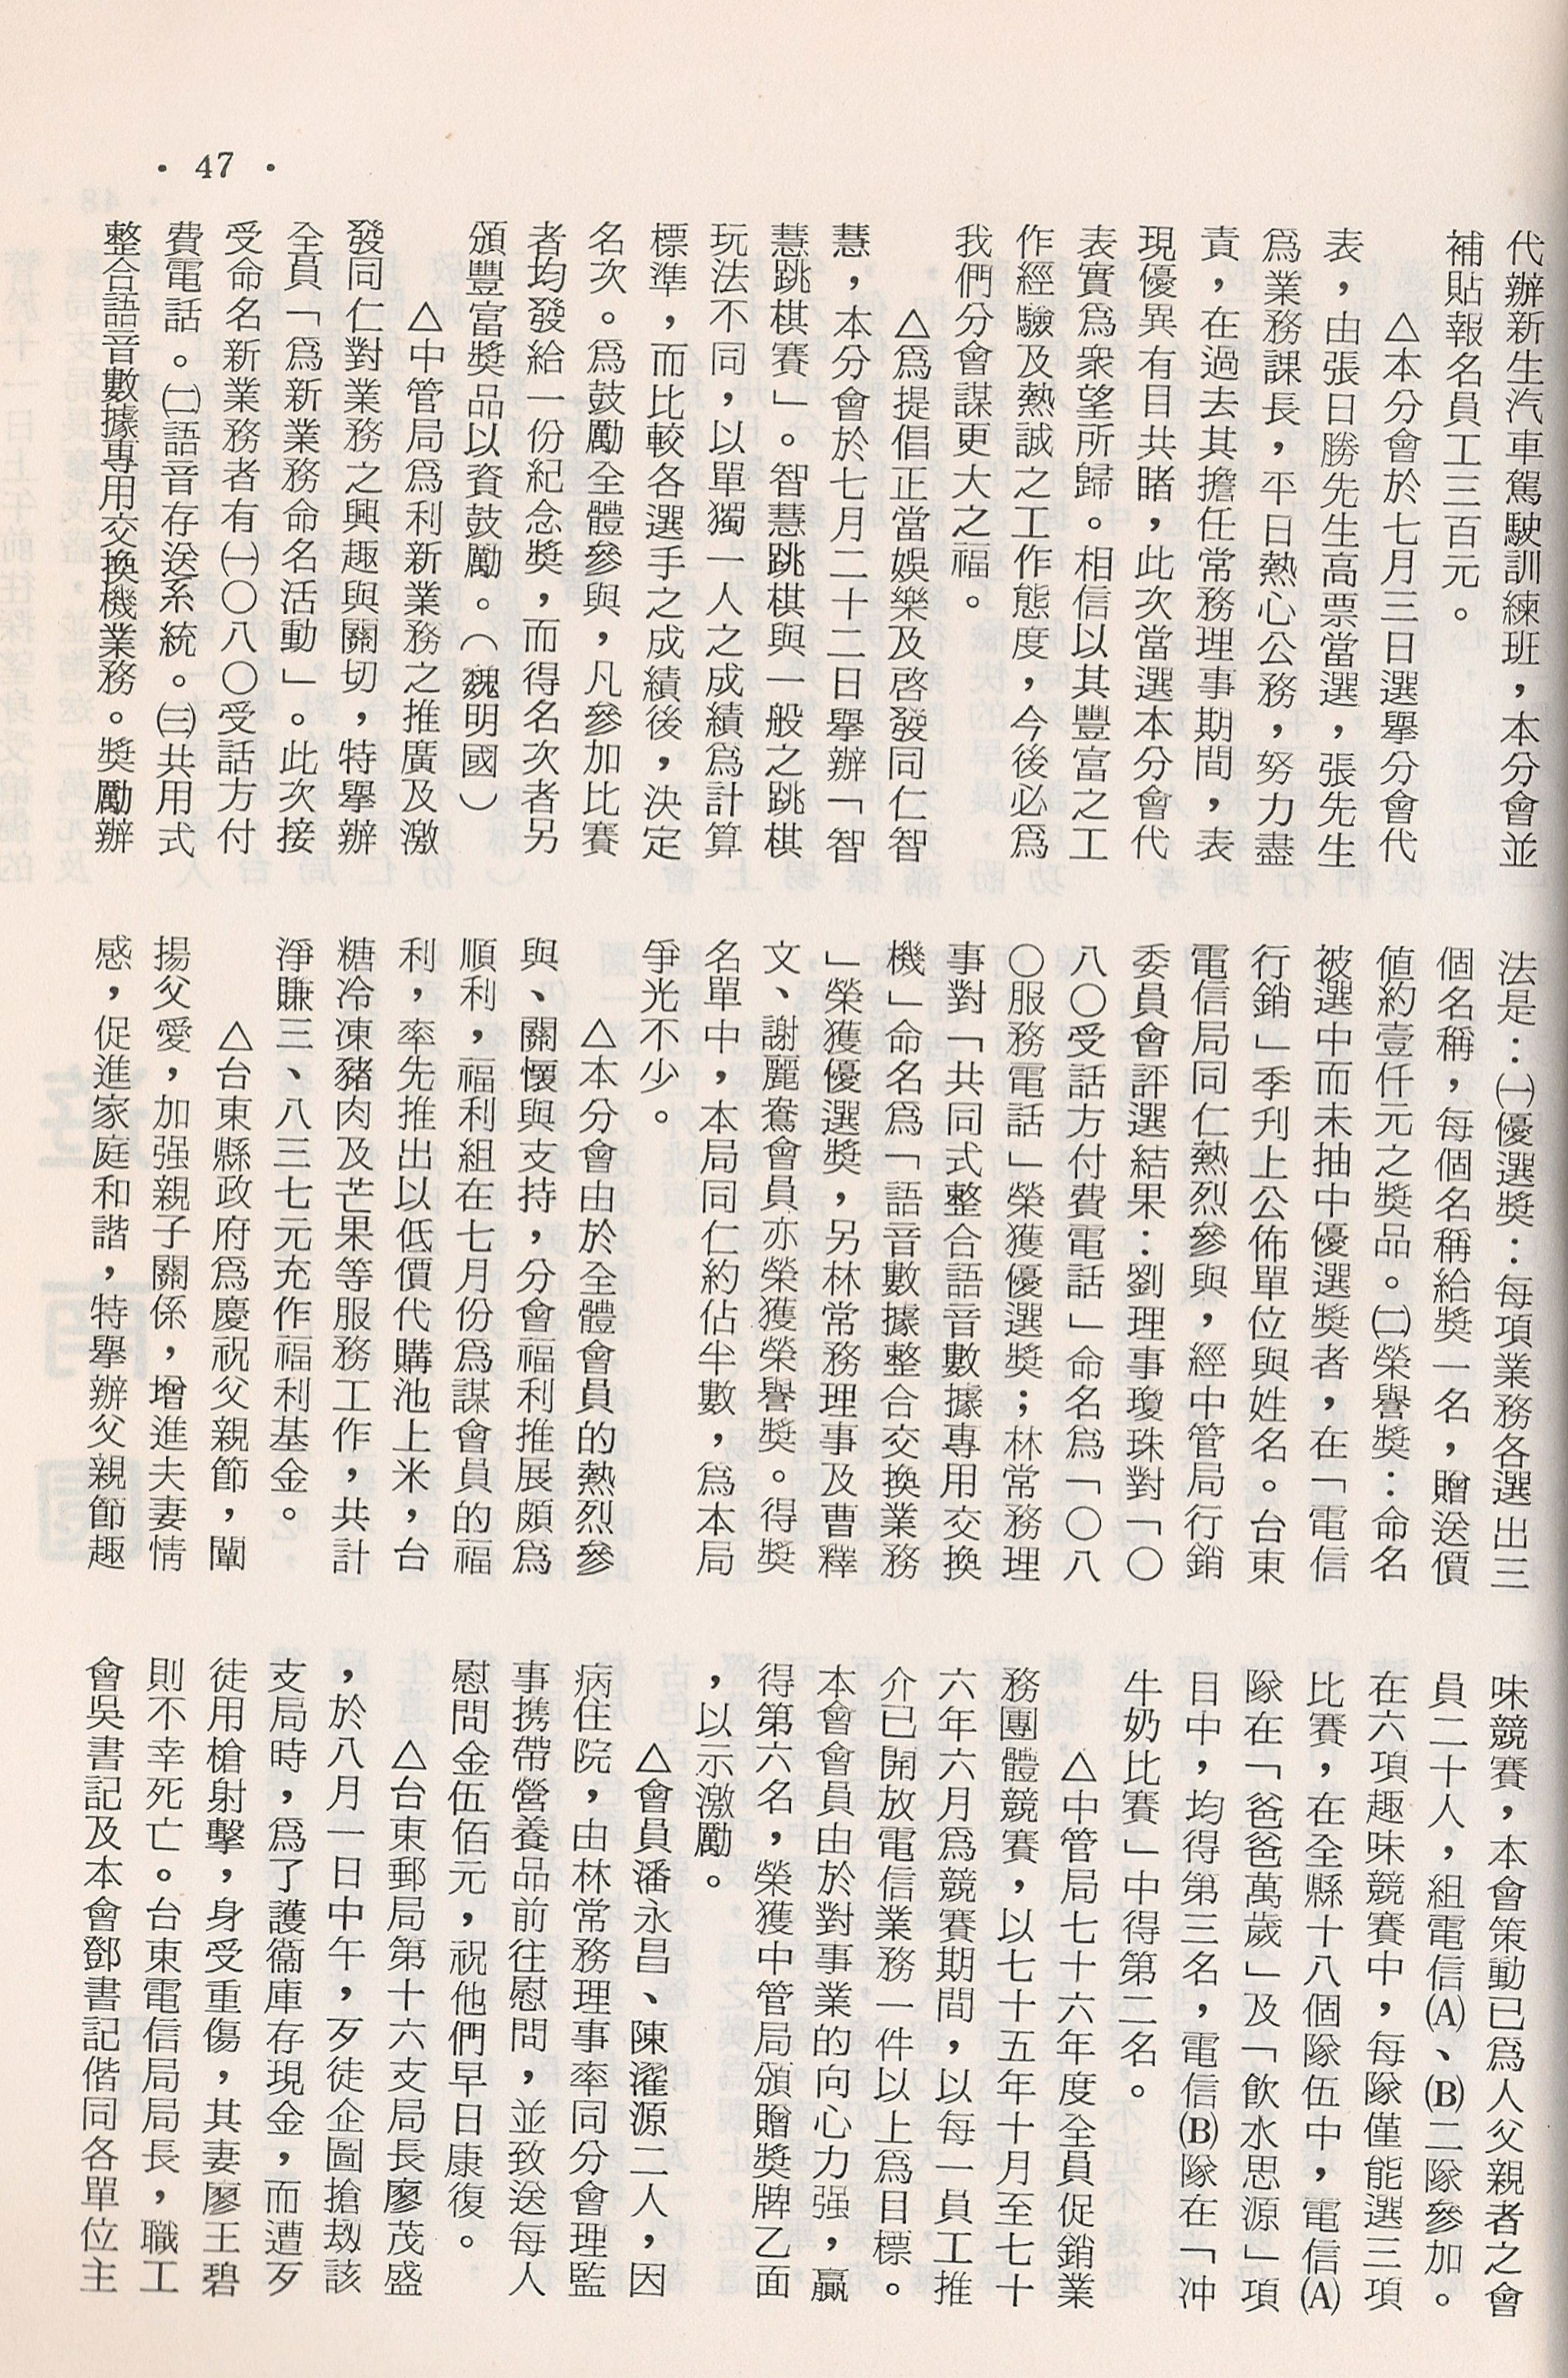 • 47 •
代辦新生汽車駕駛訓練班，本分會並
補貼報名員工三百元。
△本分會於七月三日選舉分會代
表，由張日勝先生高票當選，張先生
爲業務課長，平日熱心公務，努力盡
責，在過去其擔任常務理事期間，表
現優異有目共睹，此次當選本分會代
表實爲衆望所歸。相信以其豐富之工
作經驗及熱誠之工作態度，今後必爲
我們分會謀更大之福。
△爲提倡正當娛樂及啓發同仁智
慧，本分會於七月二十二日舉辦「智
慧跳棋賽」。智慧跳棋與一般之跳棋
玩法不同，以單獨一人之成績爲計算
標準，而比較各選手之成績後，決定
名次。爲鼓勵全體參與，凡參加比賽
者均發給一份紀念獎，而得名次者另
頒豐富獎品以資鼓勵。（魏明國）
△中管局爲利新業務之推廣及激
發同仁對業務之興趣與關切，特舉辦
全員「爲新業務命名活動」。此次接
受命名新業務者有㈠〇八〇受話方付
費電話。㈡語音存送系統。㈢共用式
整合語音數據專用交換機業務。獎勵辦
法是：㈠優選獎：每項業務各選出三
個名稱，每個名稱給獎一名，贈送價
値約壹仟元之獎品。㈡榮譽獎：命名
被選中而未抽中優選獎者，在「電信
行銷」季刋上公佈單位與姓名。台東
電信局同仁熱烈參與，經中管局行銷
委員會評選結果：劉理事瓊珠對「〇
八〇受話方付費電話」命名爲「〇八
〇服務電話」榮獲優選獎；林常務理
事對「共同式整合語音數據專用交換
機」命名爲「語音數據整合交換業務
」榮獲優選獎，另林常務理事及曹釋
文、謝麗鴦會員亦榮獲榮譽獎。得獎
名單中，本局同仁約佔半數，爲本局
爭光不少。
△本分會由於全體會員的熱烈參
與、關懷與支持，分會福利推展頗爲
順利，福利組在七月份爲謀會員的福
利，率先推出以低價代購池上米，台
糖冷凍豬肉及芒果等服務工作，共計
淨賺三、八三七元充作福利基金。
△台東縣政府爲慶祝父親節，闡
揚父愛，加强親子關係，增進夫妻情
感，促進家庭和諧，特舉辦父親節趣
味競賽，本會策動已爲人父親者之會
員二十人，組電信(A)、(B)二隊參加。
在六項趣味競賽中，每隊僅能選三項
比賽，在全縣十八個隊伍中，電信(A)
隊在「爸爸萬歲」及「飲水思源」項
目中，均得第三名，電信(B)隊在「冲
牛奶比賽」中得第二名。
△中管局七十六年度全員促銷業
務團體競賽，以七十五年十月至七十
六年六月爲競賽期間，以每一員工推
介已開放電信業務一件以上爲目標。
本會會員由於對事業的向心力强，贏
得第六名，榮獲中管局頒贈獎牌乙面
，以示激勵。
△會員潘永昌、陳濯源二人，因
病住院，由林常務理事率同分會理監
事携帶營養品前往慰問，並致送每人
慰問金伍佰元，祝他們早日康復。
△台東郵局第十六支局長廖茂盛
，於八月一日中午，歹徒企圖搶劫該
支局時，爲了護衞庫存現金，而遭歹
徒用槍射擊，身受重傷，其妻廖王碧
則不幸死亡。台東電信局局長，職工
會吳書記及本會鄧書記偕同各單位主